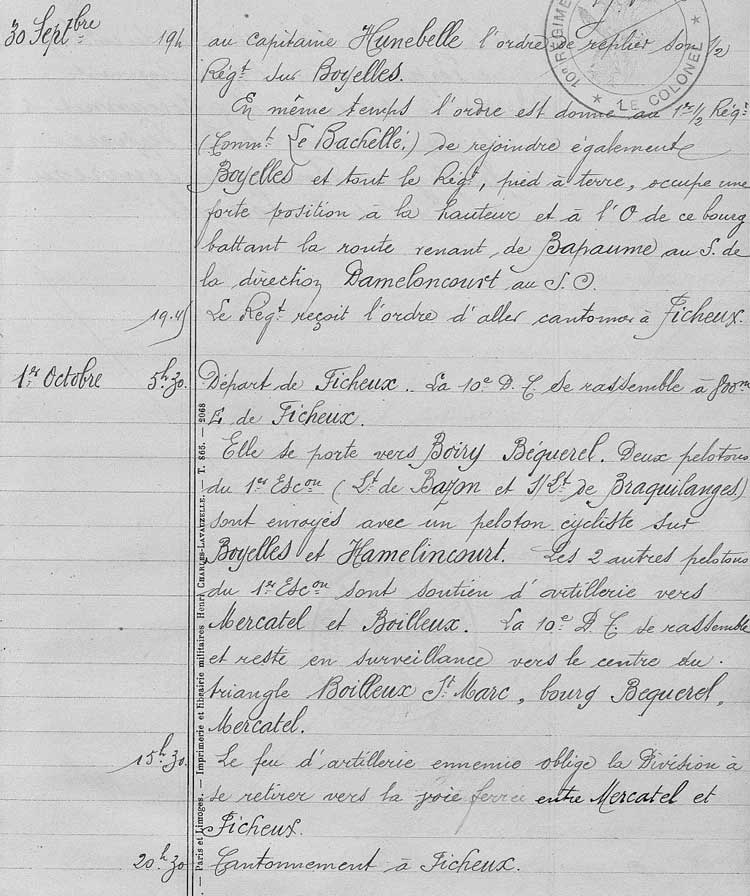 30 Septbre 19h au capitaine Hunebelle l'ordre de replier son 1/2
Régt sur Boyelles.
En même temps l'ordre est donné au 1er 1/2 Régt
(Commt Le Bachellé,) de rejoindre également
Boyelles et tout le Régt, pied à terre, occupe une
forte position à la hauteur et à l'O de ce bourg
battant la route venant de Bapaume au S. de
la direction Dameloncourt au S.O.
19.45 Le Régt reçoit l'ordre d'aller cantonner à Ficheux.
1er Octobre 5h30. Départ de Ficheux. La 10e D.C. se rassemble à 800m
E de Ficheux.
Elle se porte vers Boiry Béquerel. Deux pelotons
du 1er Escon (Lt de Bazon et S/Lt de Braquilanges)
sont envoyés avec un peloton cycliste sur
Boyelles et Hamelincourt. Les 2 autres pelotons
du 1er Escon sont soutien d'artillerie vers
Mercatel et Boilleux. La 10e D.C. se rassemble
et reste en surveillance vers le centre du
triangle Boilleux St Marc, bourg Bequerel,
Mercatel.
15h30. Le feu d'artillerie ennemie oblige la Division à
se retirer vers la voie ferrée entre Mercatel et
Ficheux.
20h30 Cantonnement à Ficheux.
10e RÉGIME
LE COLONEL
— Paris et Limoges. — Imprimerie et librairie militaires Henri CHARLES-LAVAUZELLE. — T. 865. — 2068